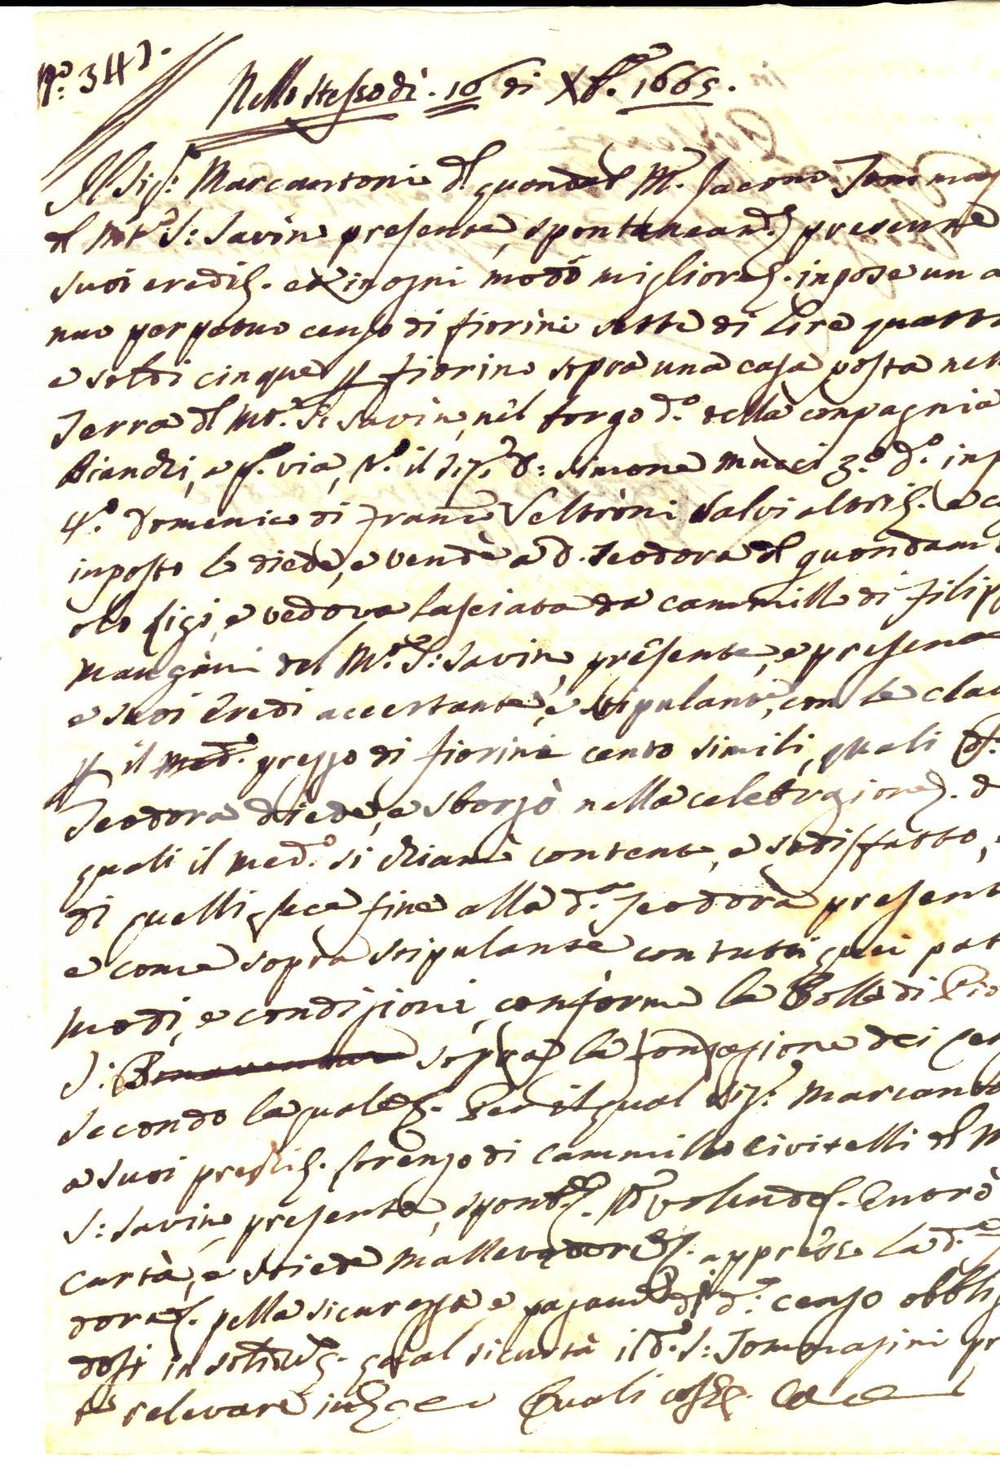 N.º 347.
Nello stesso dì. 16 di Xbre 1665.
Il Sig.r Marcantonio del quondam M. Jacomo Tommas
del Mte S: Savino presente, spontaneam.e per se e
suoi eredi. et in ogni modo migliore. inpose un a
nuo perpetuo censo di fiorini sette di Lire quatt
e soldi cinque p fiorino sopra una casa posta nel
Terra del Mte S: Savino, nel borgo d.º della conpagnia
Bianchi, a p.º via, 2.º il Sig.r D: Simone Mucci 3.º d.º inp
4.º Domenico di Franc.º Veltroni Salvi altri. e c
inposto lo diede, e vendè a D. Teodora del quondam
olo Ligi, e vedova lasciata da Cammillo di Filip
Mangani del Mte S: Savino, presente, e per se
e suoi Eredi accettante, e stipulante, con le clau
p il med.º prezzo di fiorini cento simili, quali d.
Teodora diede, e sborzò nella celebrazione. d
quali il med.º si chiamò contento, e sodisfatto,
di quelli fece fine alla d.a Teodora present
e come sopra stipulante con tutti quei pat
modi, e condizioni, conforme la Bolla di Pio
S: sopra la fondazione dei Cen
secondo la quale. Per il qual Sig.r Marcanto
a suoi preghi. Lorenzo di Cammillo Civitelli del M
S: Savino presente, spont.e volendo. Entrò
curtà, e stiede Mallevadore. appresso la d.a
dora. pella sicurezza e pagam.to di d.º censo obblig
dosi in solidum. qual sicurtà il d.º S: Tommasini pr
se relevare in Quali cose.